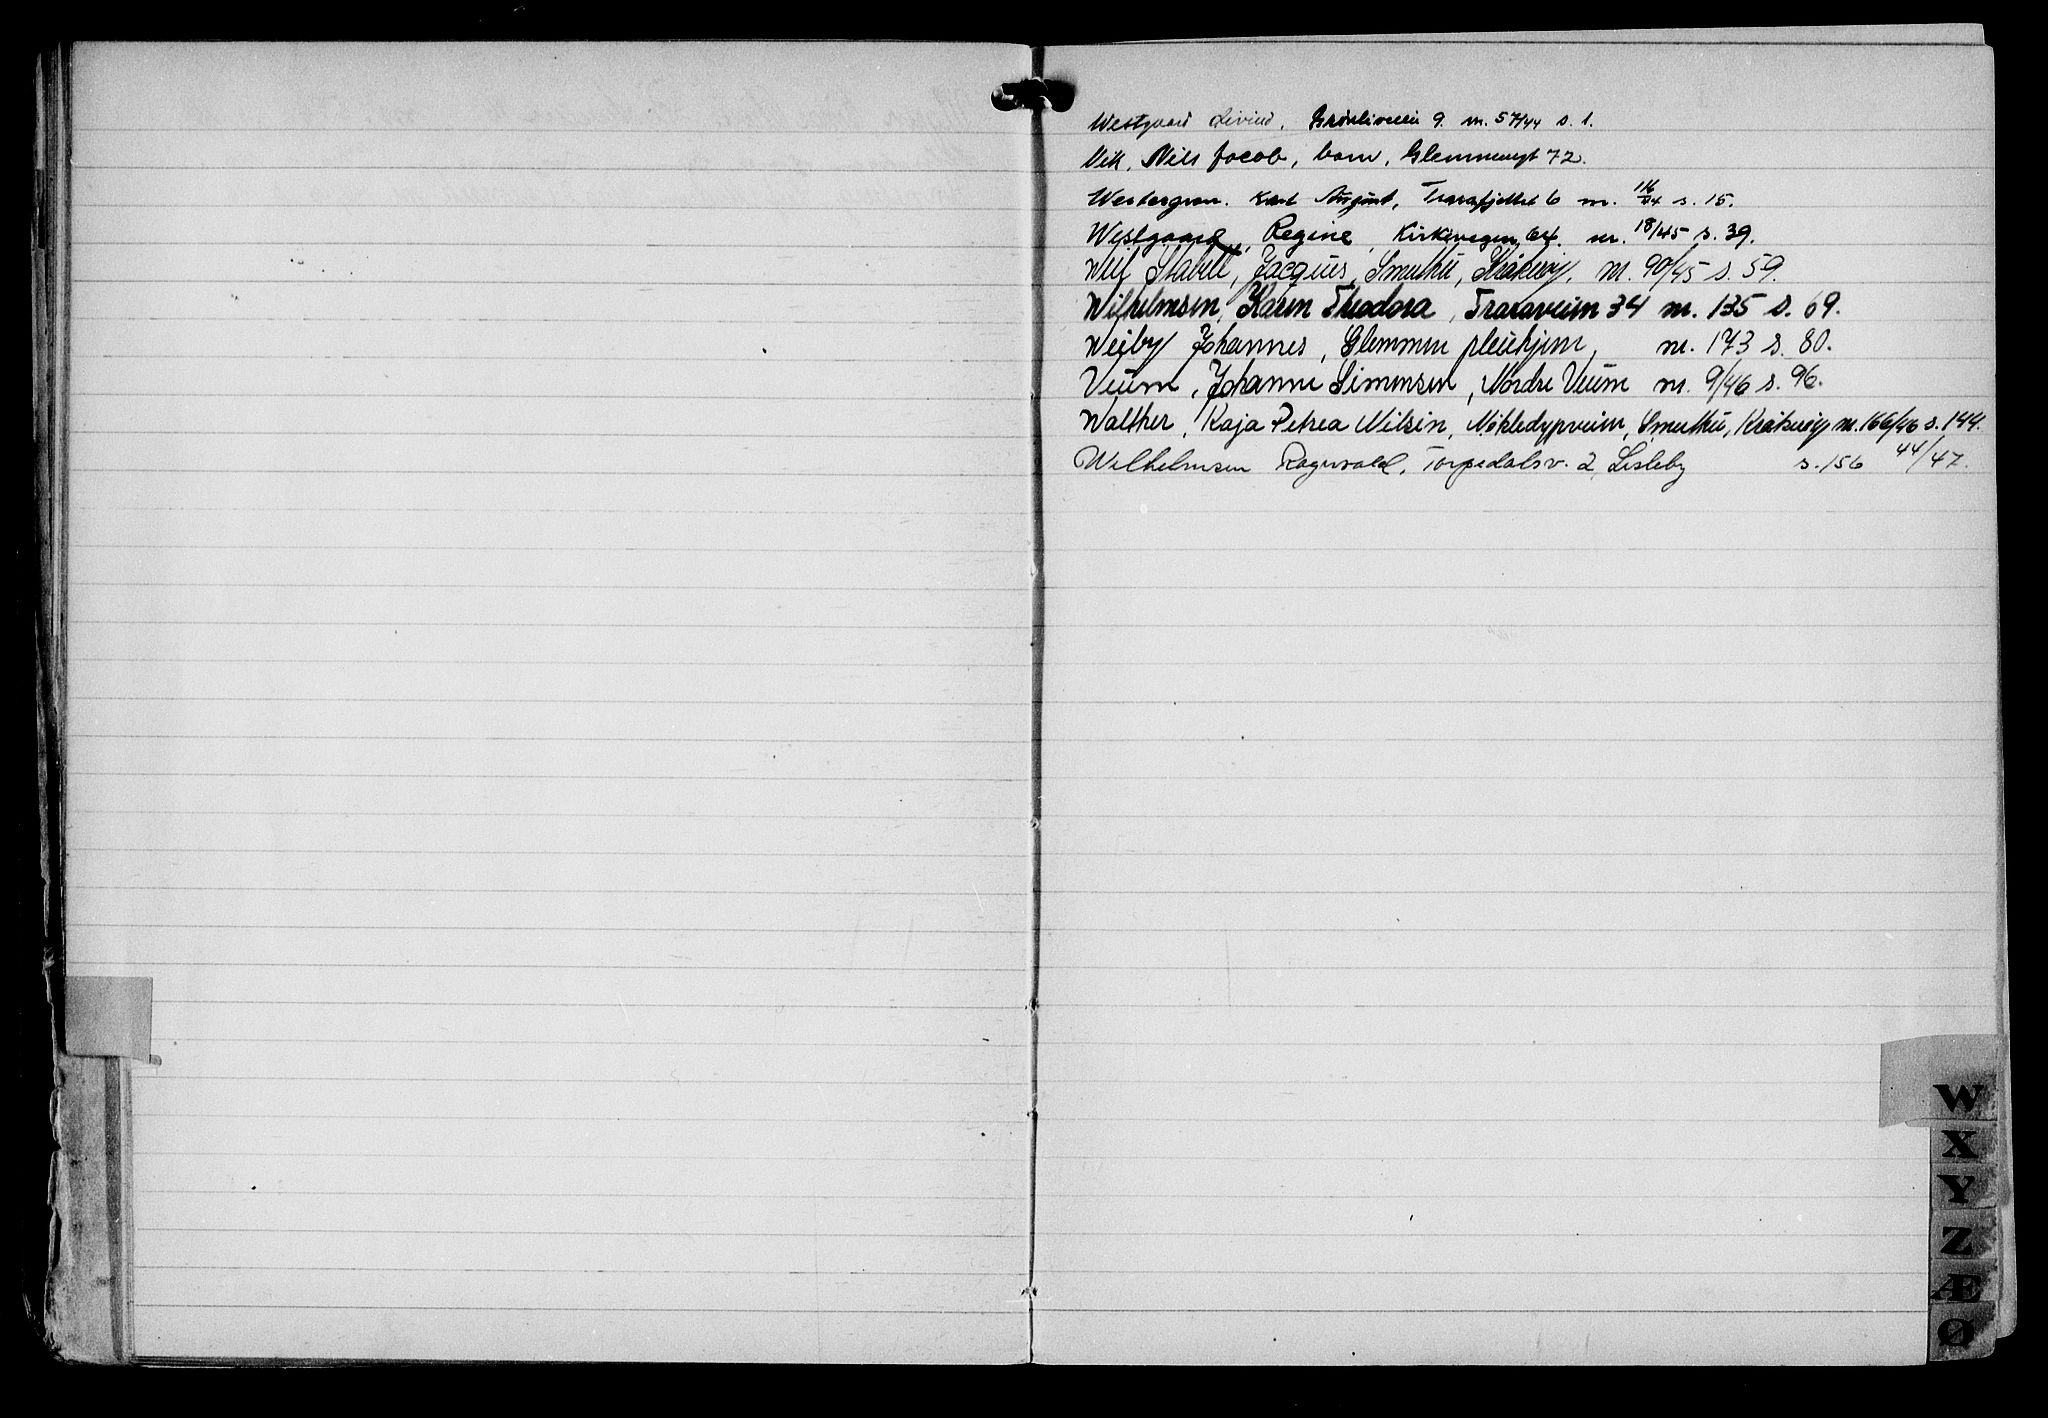 Westgaard Eivind, Grønliveien 9. nr. 57/44 s. 1.
Vik, Nils Jacob, barn, Glemmengt 72.
Westergren. Karl August, Trarafjellet 6 nr. 116/44 s. 15.
Westgaard, Regine, Kirkevegen 64. nr. 18/45 s. 39.
Stabell, Jacques, Smertu, Kråkerøy, nr. 90/45 s. 59.
Wilhelmsen, Karen Theodora, Traraveien 34 nr. 135 s. 69.
Weiby Johannes, Glemmen pleiehjem, nr. 173 s. 80.
Veum, Johanne Simensen, Nordre Veum nr. 9/46 s. 96.
Walther, Kaja Petrea Nilsen, Møkledypveien, Smertu, Kråkerøy nr. 166/46 s. 144.
Wilhelmsen Ragnvald, Torpedalsv. 2, Lisleby s. 156 44/47.
W
X
Y
Z
Æ
Ø